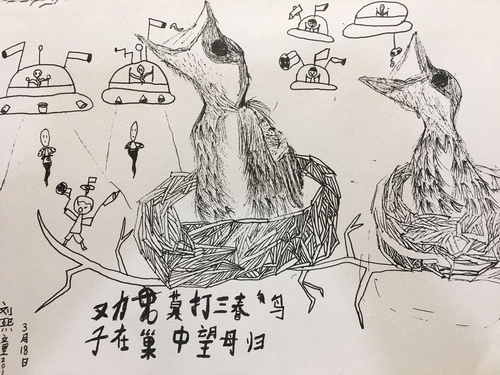 劝君莫打三春鸟
子在巢中望母归
3月18日
刘熙童